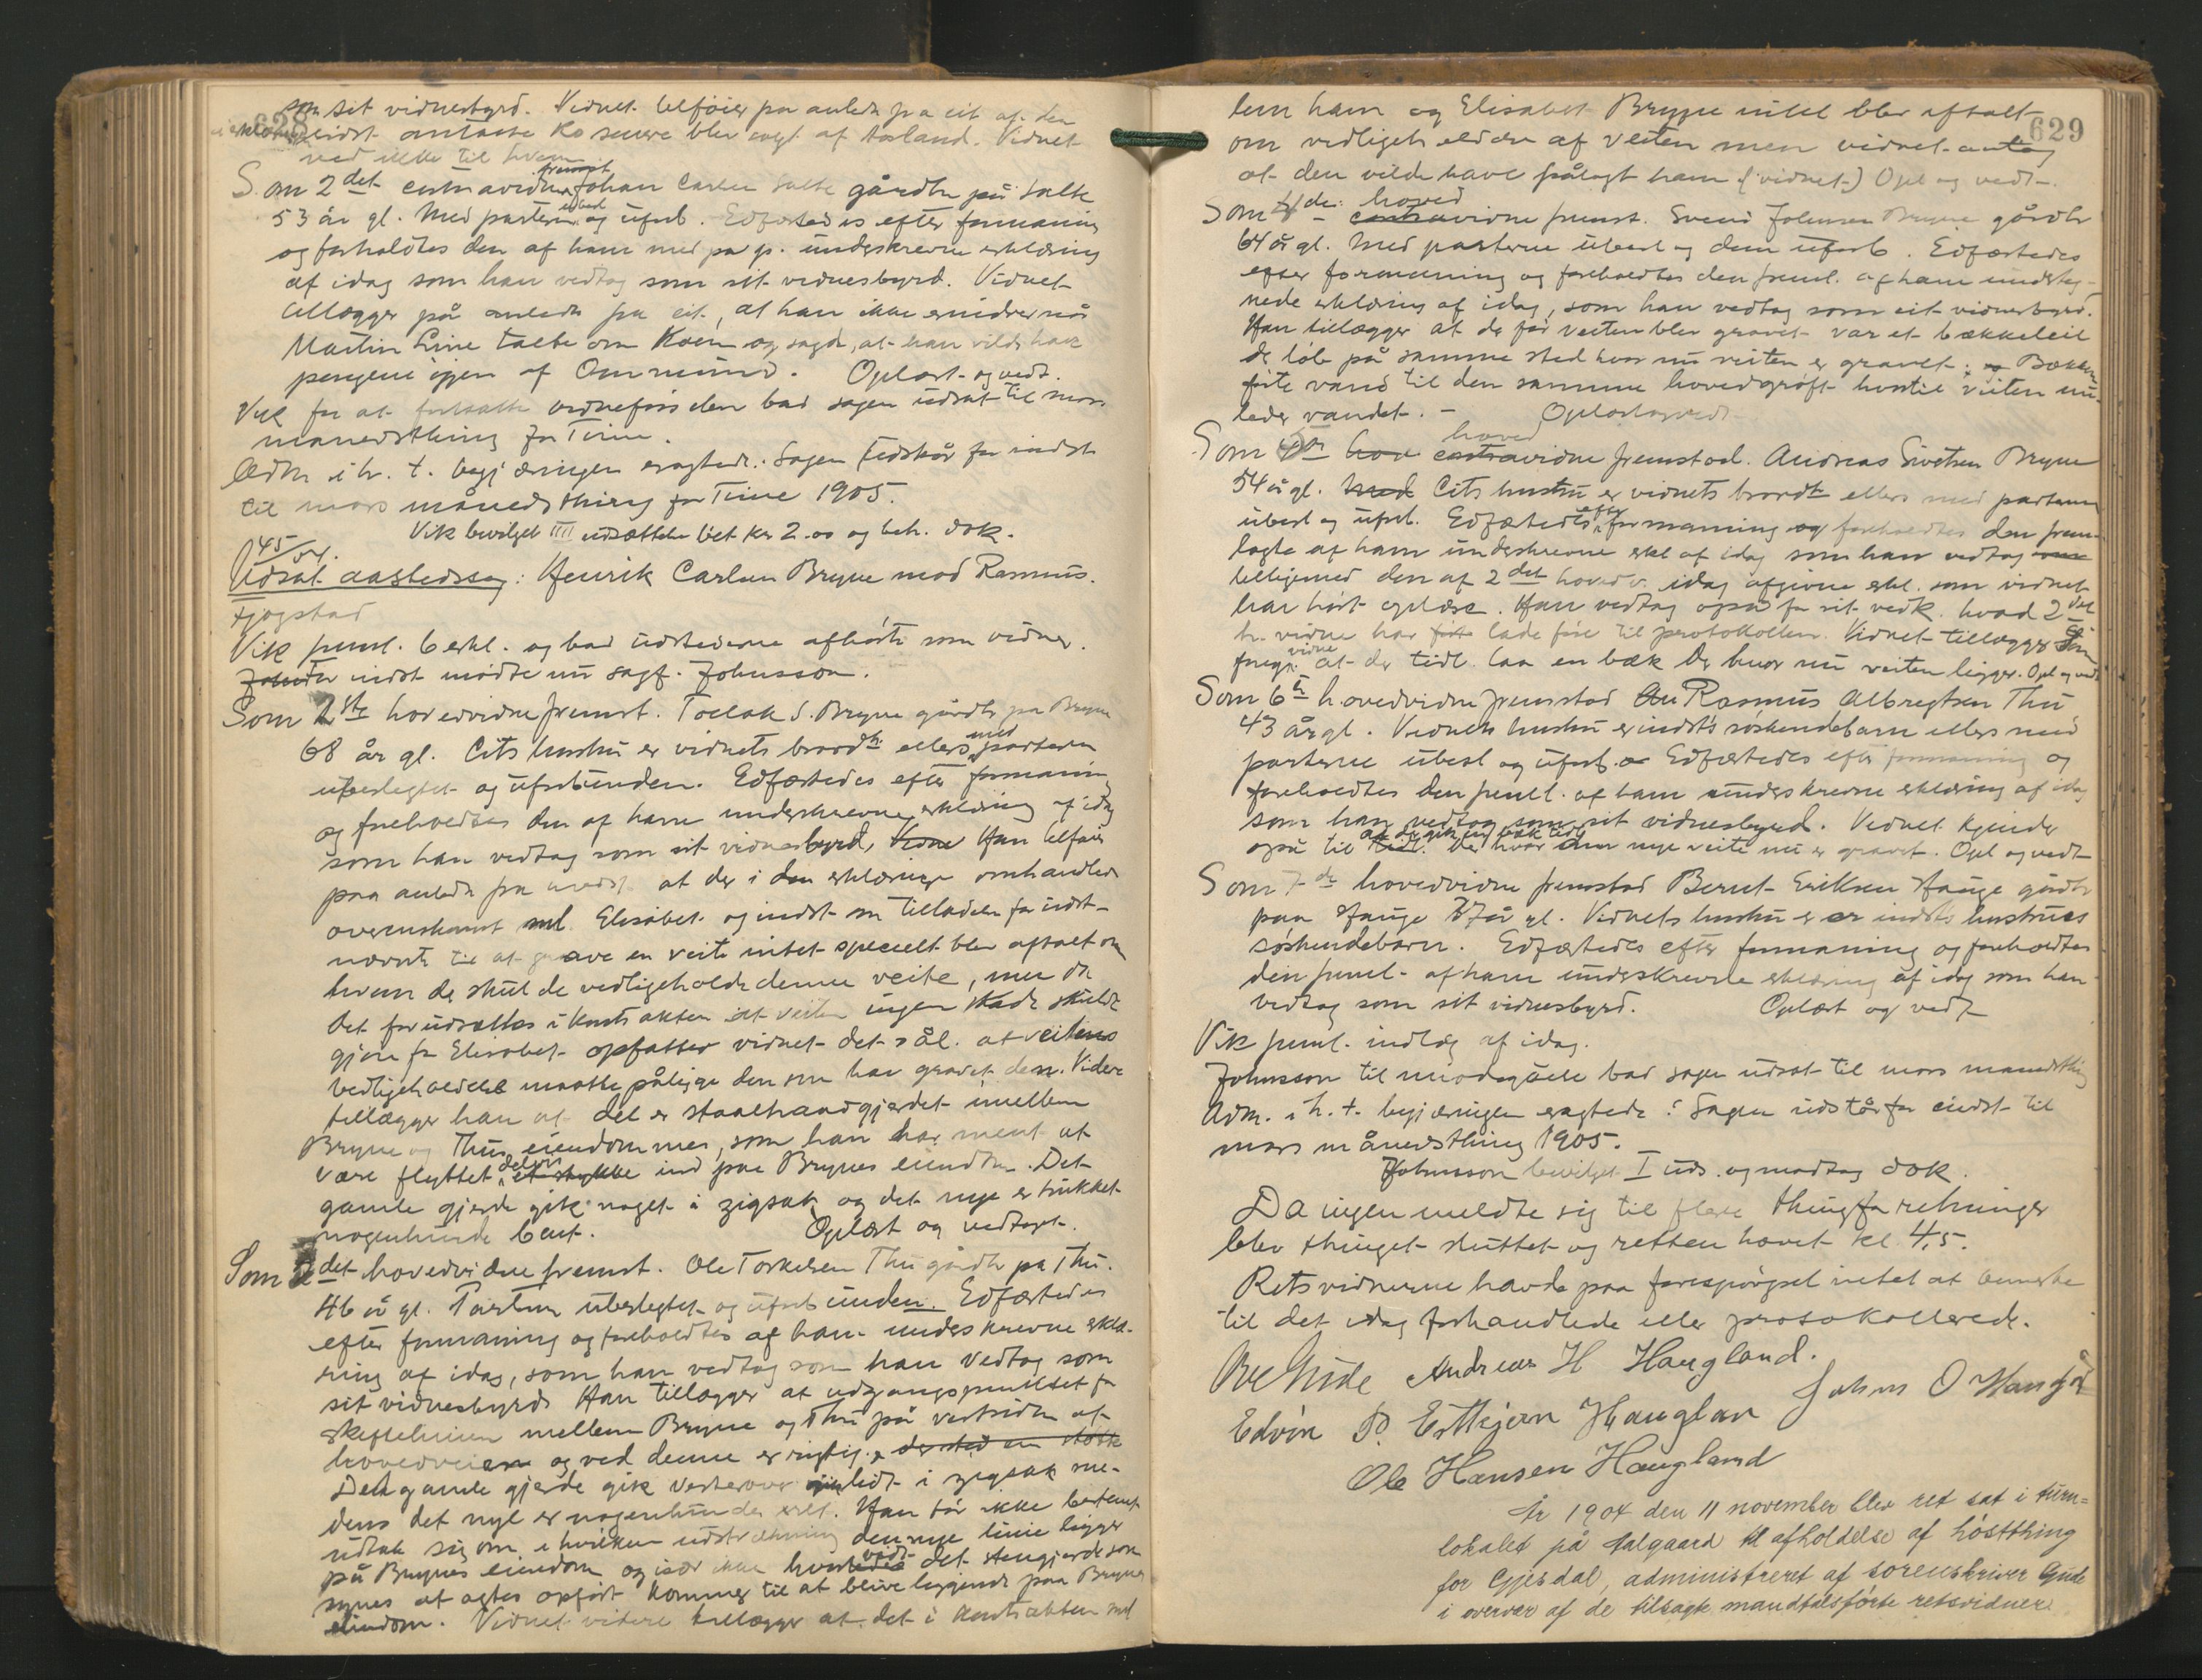 628
som sit vidnesbyrd. Vidnet tilføier paa anledn fra cit at den
indst. omtalte Ko senere blev solgt af Aarland. Vidnet
ved ikke til hvem
Som 2det contravidne fremst Johan Carlsen Salte gårdbr på Salte
53 år gl. Med parterne ubesl og uforb. Edfæstedes efter formaning
og forholdtes den af ham med pa p. underskrevne erklæring
af idag som han vedtog som sit vidnesbyrd. Vidnet
tillægger på anledn fra cit, at han ikke erindrer når
Martin Line talte om Koen og sagde, at han vilde have
pengene igjen af Ommund. Oplæst og vedt.
Vik for at fortsætte vidneførselen bad sagen udsat til mars
manedsthing for Time.
Adm i h. t. begjæringen eragtede: Sagen udstår for indst
til mars månedsthing for Time 1905.
Vik bevilget IIII udsættelse bet Kr 2.00 og beh. dok.
45/04.
Udsat aastedssag: Henrik Carlsen Bryne mod Rasmus
Fjogstad
Vik freml. 6 erkl. og bad udstederne afhørte som vidner.
For indst mødte nu sagf. Johnsson.
Som 1ste hovedvidne fremst. Torlak S. Bryne gårdbr paa Bryne
68 år gl. Cits hustru er vidnets brordtr. ellers med parterne
ubeslegtet og uforbunden. Edfæstedes efter formaning
og foreholdtes den af ham underskrevne erklæring af idag
som han vedtog som sit vidnesbyrd, Vidne Han tilføier
paa anledn fra indst. at der i den erklæringe omhandlede
overenskomst ml. Elisabet og indst om tilladelse for indst-
nævnte til at grave en veite intet specielt blev aftalt om
hvem der skulde vedligeholde denne veite, men da
det forudsættes i Kontrakten at veiten ingen skade skulde
gjøre for Elisabet opfatter vidnet det sål. at veitens
vedligeholdelse maatte påligge den som har gravet den. Videre
tillægger han at det er staaltraadgjerdet imellem
Bryne og Thus eiendommer, som han har ment at
være flyttet delvis et stykke ind paa Brynes eiendom. Det
gamle gjerde gik noget i zigsak og det nye er trukket
nogenlunde bent. Oplæst og vedtaget.
Som 2det hovedvidne fremst. Ole Torkelsen Thu gårdbr på Thu.
46 år gl. Parterne ubeslegtet og uforbunden. Edfæstedes
efter formaning og foreholdtes af ham underskrevne erklæ-
ring af idag, som han vedtog som han vedtog som
sit vidnesbyrd. Han tillægger at udgangspunktet for
skiftelinien mellem Bryne og Thu på vestsiden af
hovedveien og ved denne er rigtig. der sted en støtte
Det gamle gjerde gik vestover lidt i zigsak me-
dens det nye er nogenlunde ret. Han tør ikke bestemt
udtale sig om i hvilken udstrækning den nye linie ligger
på Brynes eiendom og især ikke hvorvidt det stengjerde som
synes at agtes opført kommer til at blive liggende paa Brynes
eiendom. Vidnet videre tillægger at det i Kontrakten ml
629
lem ham og Elisabet Bryne intet blev aftalt
om vedligeholdelse af veiten men vidnet antog
at den vilde have pålagt ham (vidnet) Opl og vedt.
Som 4de hoved contravidne fremst. Svend Johnsen Bryne gårdbr
64 år gl. Med parterne ubesl og dem uforb. Edfæstedes
efter formaning og foreholdtes den freml. af ham underteg-
nede erklæring af idag, som han vedtog som sit vidnesbyrd.
Han tillægger at da før veiten blev gravet var et bækkeleie
der løb på samme sted hvor nu veiten er gravet. Bækken
førte vand til den samme hovedgrøft hvortil veiten nu
leder vandet. - Oplæst og vedt
Som 5te hov hoved contravidne fremstod. Andreas Sivertsen Bryne
54 år gl. Med Cits hustru er vidnets brordtr ellers med parterne
ubesl og uforb. Edfæstedes efter formaning og foreholdtes den frem-
lagte af ham underskrevne erkl af idag som han vedtog som
tilligemed den af 2det hovedv. idag afgivne erkl. som vidnet
har hørt oplæse. Han vedtog også for sit vedk. hvad 2det
h. vidne har ført lade føre til protokollen. Vidnet tillægger som
foreg. vidne at der tidl. laa en bæk der hvor nu veiten ligger. Opl og vedt
Som 6te hovedvidne fremstod Rasmus Albregtsen Thu
43 år gl. Vidnets hustru er indsts søskendebarn ellers med
parterne ubesl og uforb. Edfæstedes efter formaning og
foreholdtes den freml. af ham underskrevne erklæring af idag
som han vedtog som sit vidnesbyrd. Vidnet kjender
også til at der gik en bæk tidl der hvor den nye veite nu er gravet. Opl og vedt
Som 7de hovedvidne fremstod Bernt Eriksen Hauge gårdbr
paa Hauge 37 år gl. Vidnets hustru er indsts hustrues
søskendebarn. Edfæstedes efter formaning og foreholdtes
den freml. af ham underskrevne erklæring af idag som han
vedtog som sit vidnesbyrd. Oplæst og vedt
Vik freml. indlæg af idag.
Johnsson til imødegåelse bad sagen udsat til mars manedsthing
Adm. i h. t. begjæringen eragtede: Sagen udstår for indst til
mars månedsthing 1905.
Johnsson bevilget I uds. og modtog dok.
Da ingen meldte sig til flere thingforretninger
blev thinget sluttet og retten hævet kl 4,5.
Retsvidnerne havde paa forespørgsel intet at bemerke
til det idag forhandlede eller protokollerede.
Ove Gude Andreas H Haugland.
Edvin P. Esthjørn Hauglan Johns O Haugå
Ole Hansen Haugland
År 1904 den 11 november blev ret sat i turn=
lokalet på Aalgaard til afholdelse af høstthing
for Gjesdal, administreret af sorenskriver Gude
i overvær af de tilsagte mandtalsførte retsvidner